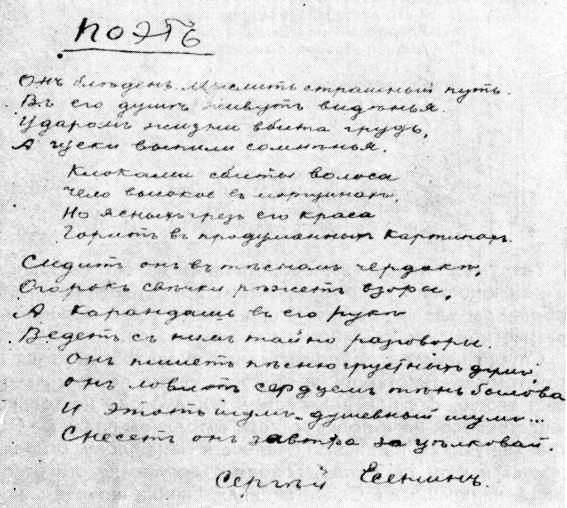 ПОЭТЪ
Онъ блѣденъ. Мыслитъ страшный путь.
Въ его душѣ живутъ видѣнья.
Ударомъ жизни вбита грудь,
А щеки выпили сомнѣнья.
Клоками сбиты волоса
Чело высокое въ морщинахъ,
Но ясныхъ грезъ его краса
Горитъ въ продуманныхъ картинахъ.
Сидитъ онъ въ тѣсномъ чердакѣ,
Огарокъ свѣчки рѣжетъ взоры,
А карандашъ въ его рукѣ
Ведетъ съ нимъ тайно разговоры.
Онъ пишетъ пѣсню грустныхъ думъ,
Онъ ловитъ сердцемъ тѣнь былова
И этотъ шумъ.. душевный шумъ...
Снесетъ онъ завтра за цѣлковай.
Сергѣй Есенинъ.